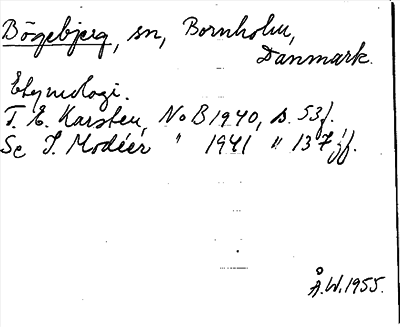 Bögebjerg, sn, Bornholm,
Danmark.
Etymologi.
T. E. Karsten, NoB 1940, s. 53f.
Se I. Modéer " 1941 " 137ff.
Å.W. 1955.